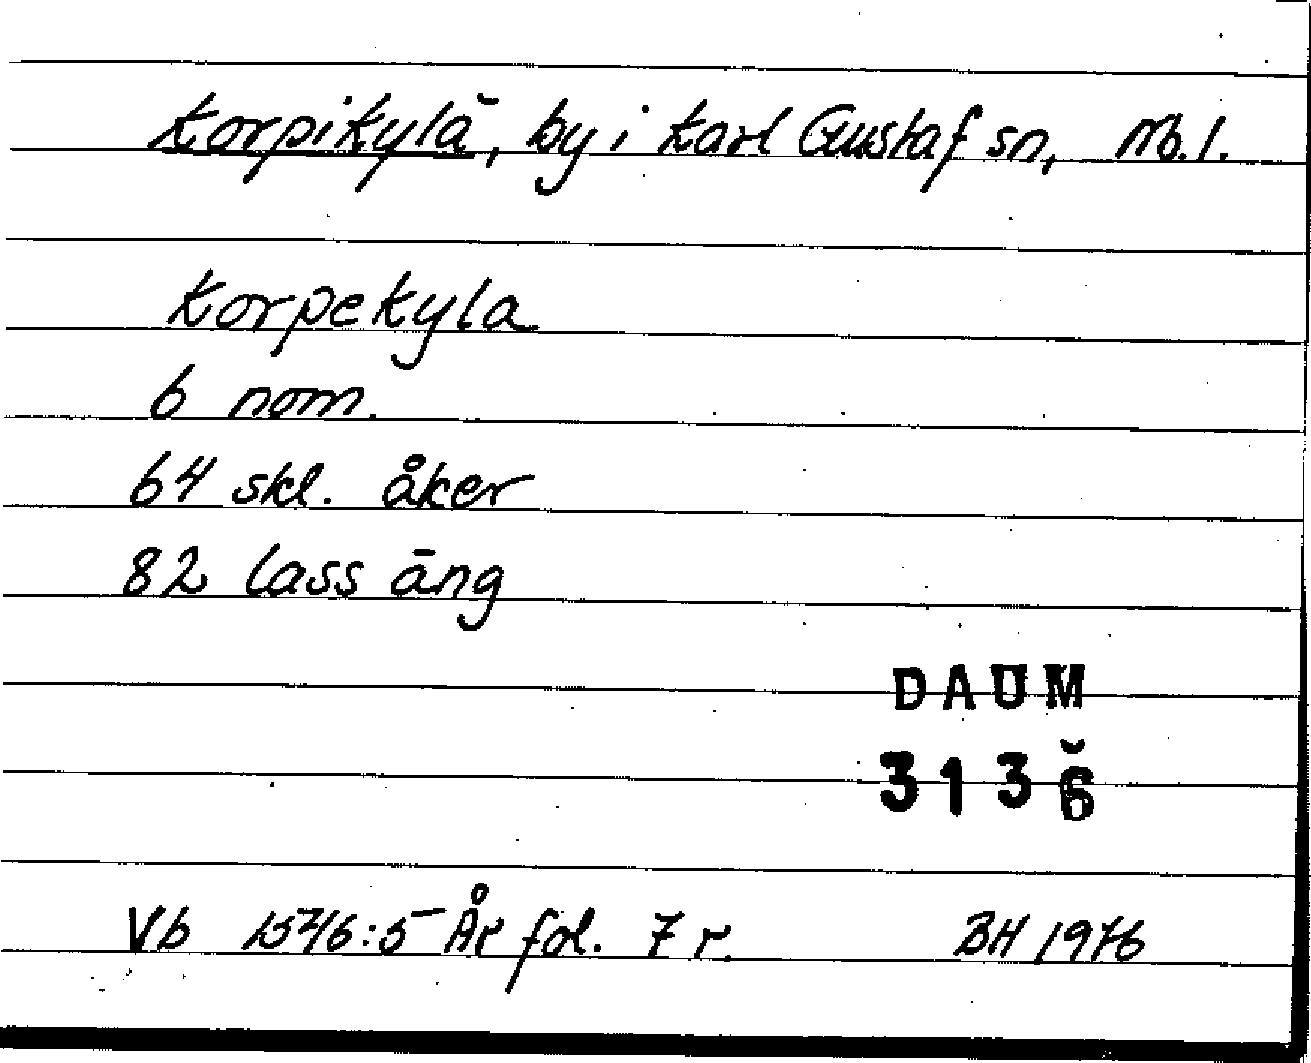 Korpikylä, by i Karl Gustaf sn, Nb.l.
Korpekyla
6 nom.
64 skl. åker
82 lass äng
DAUM
3136
Vb 1546:5 År fol. 7 r. BH 1976